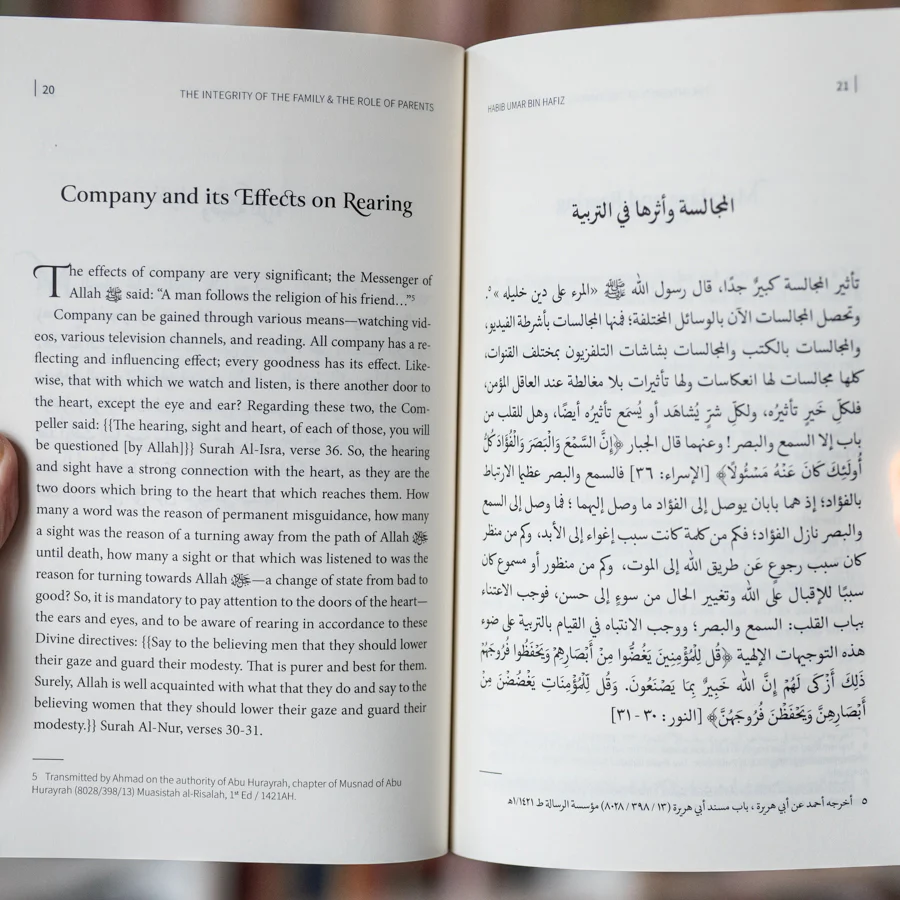 20
THE INTEGRITY OF THE FAMILY & THE ROLE OF PARENTS
Company and its Effects on Rearing
The effects of company are very significant; the Messenger of
Allah ﷺ said: “A man follows the religion of his friend…”5
Company can be gained through various means—watching vid-
eos, various television channels, and reading. All company has a re-
flecting and influencing effect; every goodness has its effect. Like-
wise, that with which we watch and listen, is there another door to
the heart, except the eye and ear? Regarding these two, the Com-
peller said: {{The hearing, sight and heart, of each of those, you will
be questioned [by Allah]}} Surah Al-Isra, verse 36. So, the hearing
and sight have a strong connection with the heart, as they are the
two doors which bring to the heart that which reaches them. How
many a word was the reason of permanent misguidance, how many
a sight was the reason of a turning away from the path of Allah
until death, how many a sight or that which was listened to was the
reason for turning towards Allah —a change of state from bad to
good? So, it is mandatory to pay attention to the doors of the heart—
the ears and eyes, and to be aware of rearing in accordance to these
Divine directives: {{Say to the believing men that they should lower
their gaze and guard their modesty. That is purer and best for them.
Surely, Allah is well acquainted with what that they do and say to the
believing women that they should lower their gaze and guard their
modesty.}} Surah Al-Nur, verses 30-31.
5 Transmitted by Ahmad on the authority of Abu Hurayrah, chapter of Musnad of Abu
Hurayrah (8028/398/13) Muasistah al-Risalah, 1st Ed / 1421AH.
HABIB UMAR BIN HAFIZ
21
المجالسة وأثرها في التربية
تأثير المجالسة كبيرٌ جدًا، قال رسول الله ﷺ «المرء على دين خليله»٥.
وتحصل المجالسات الآن بالوسائل المختلفة؛ فمنها المجالسات بأشرطة الفيديو،
والمجالسات بالكتب والمجالسات بشاشات التلفزيون بمختلف القنوات،
كلها مجالسات لها انعكاسات ولها تأثيرات بلا مغالطة عند العاقل المؤمن،
فلكلِّ خَيرٍ تأثيرُه، ولكلِّ شرٍّ يُشاهَد أو يُسمَع تأثيرُه أيضًا، وهل للقلب من
باب إلا السمع والبصر! وعنهما قال الجبار ﴿إِنَّ السَّمْعَ وَالْبَصَرَ وَالْفُؤَادَ كُلُّ
أُولَئِكَ كَانَ عَنْهُ مَسْئُولًا﴾ [الإسراء: ٣٦] فالسمع والبصر عظيما الارتباط
بالفؤاد؛ إذ هما بابان يوصل إلى الفؤاد ما وصل إليهما؛ فما وصل إلى السمع
والبصر نازل الفؤاد؛ فكم من كلمة كانت سبب إغواء إلى الأبد، وكم من منظر
كان سبب رجوعٍ عَن طريق الله إلى الموت، وكم من منظور أو مسموع كان
سببًا للإقبال على الله وتغيير الحال من سوءٍ إلى حسن، فوجب الاعتناء
بباب القلب: السمع والبصر؛ ووجب الانتباه في القيام بالتربية على ضوء
هذه التوجيهات الإلهية ﴿قُل لِّلْمُؤْمِنِينَ يَغُضُّوا مِنْ أَبْصَارِهِمْ وَيَحْفَظُوا فُرُوجَهُمْ
ذَلِكَ أَزْكَى لَهُمْ إِنَّ اللَّه خَبِيرٌ بِمَا يَصْنَعُونَ. وَقُل لِّلْمُؤْمِنَاتِ يَغْضُضْنَ مِنْ
أَبْصَارِهِنَّ وَيَحْفَظْنَ فُرُوجَهُنَّ﴾ [النور: ٣٠-٣١]
٥ أخرجه أحمد عن أبي هريرة، باب مسند أبي هريرة (١٣ / ٣٩٨ / ٨٠٢٨) مؤسسة الرسالة ط ١/١٤٢١هـ